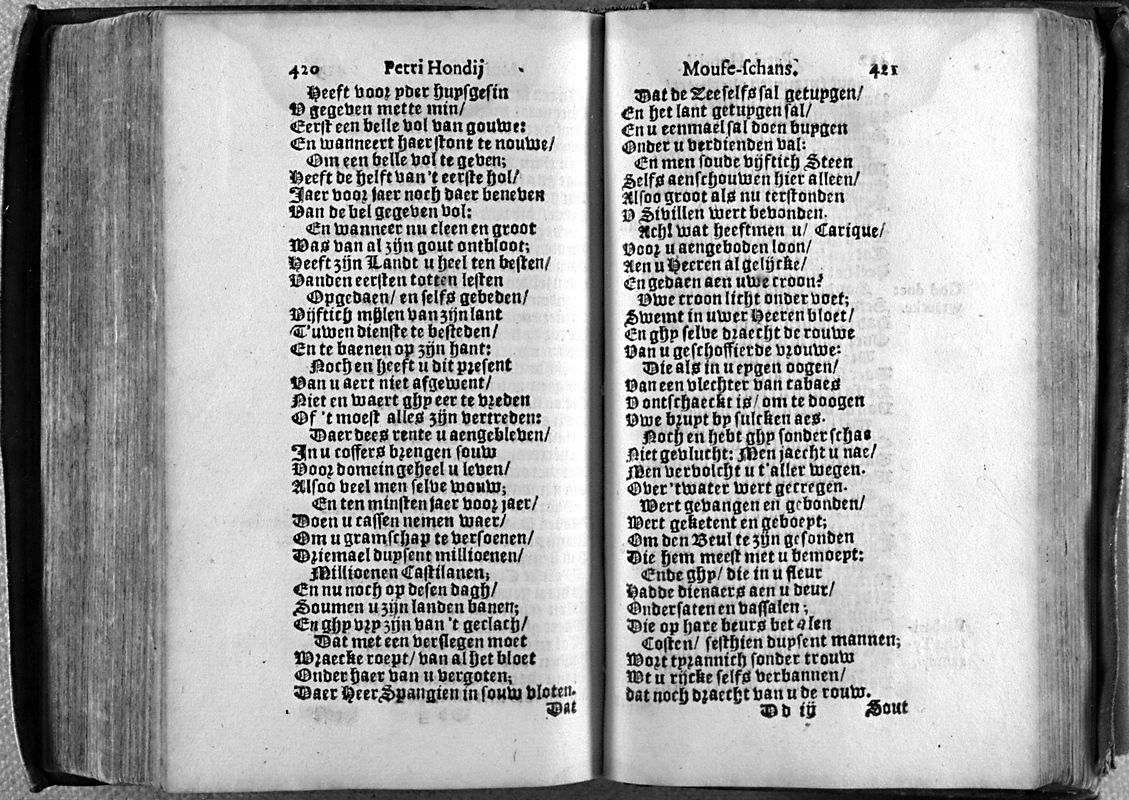 420 Petri Hondij
Heeft voor yder huysgesin
V gegeven mette min/
Eerst een belle vol van gouwe:
En wanneert haer stont te nouwe/
Om een belle vol te geven;
Heeft de helft van 't eerste hol/
Jaer voor jaer noch daer beneven
Van de bel gegeven vol:
En wanneer nu cleen en groot
Was van al zijn gout ontbloot;
Heeft zijn Landt u heel ten besten/
Vanden eersten totten lesten
Opgedaen/ en selfs gebeden/
Vijftich mylen van zijn lant
T'uwen dienste te besteden/
En te baenen op zijn hant:
Noch en heeft u dit present
Van u aert niet afgewent/
Niet en waert ghy eer te vreden
Of 't moest alles zijn vertreden:
Daer dees rente u aengebleven/
In u coffers brengen souw
Voor domein geheel u leven/
Alsoo veel men selve wouw;
En ten minsten jaer voor jaer/
Doen u cassen nemen waer/
Om u gramschap te versoenen/
Driemael duysent millioenen/
Millioenen Castilanen;
En nu noch op desen dagh/
Soumen u zijn landen banen;
En ghy vry zijn van 't geclach/
Dat met een verslegen moet
Wraecke roept/ van al het bloet
Onder haer van u vergoten;
Daer Heer Spangien in souw vloten.
Dat
Moufe-schans. 421
Dat de Zee selfs sal getuygen/
En het lant getuygen sal/
En u eenmael sal doen buygen
Onder u verdienden val:
En men soude vijftich Steen
Selfs aenschouwen hier alleen/
Alsoo groot als nu terstonden
V Sivillen wert bevonden.
Ach! wat heeftmen u/ Carique/
Voor u aengeboden loon/
Aen u Heeren al gelijcke/
En gedaen aen uwe croon?
Vwe croon licht onder voet;
Swemt in uwer Heeren bloet/
En ghy selve draecht de rouwe
Van u geschoffierde vrouwe:
Die als in u eygen oogen/
Van een vlechter van cabaes
V ontschaeckt is/ om te doogen
Vwe bruyt by sulcken aes.
Noch en hebt ghy sonder schae
Niet gevlucht: Men jaecht u nae/
Men vervolcht u t'aller wegen.
Over 'twater wert gecregen.
Wert gevangen en gebonden/
Wert geketent en geboept;
Om den Beul te zijn gesonden
Die hem meest met u bemoept:
Ende ghy/ die in u fleur
Hadde dienaers aen u deur/
Ondersaten en vassalen;
Die op hare beurs betalen
Costen/ sesthien duysent mannen;
Wort tyrannich sonder trouw
Wt u rijcke selfs verbannen/
dat noch draecht van u de rouw.
Dd iij Sout